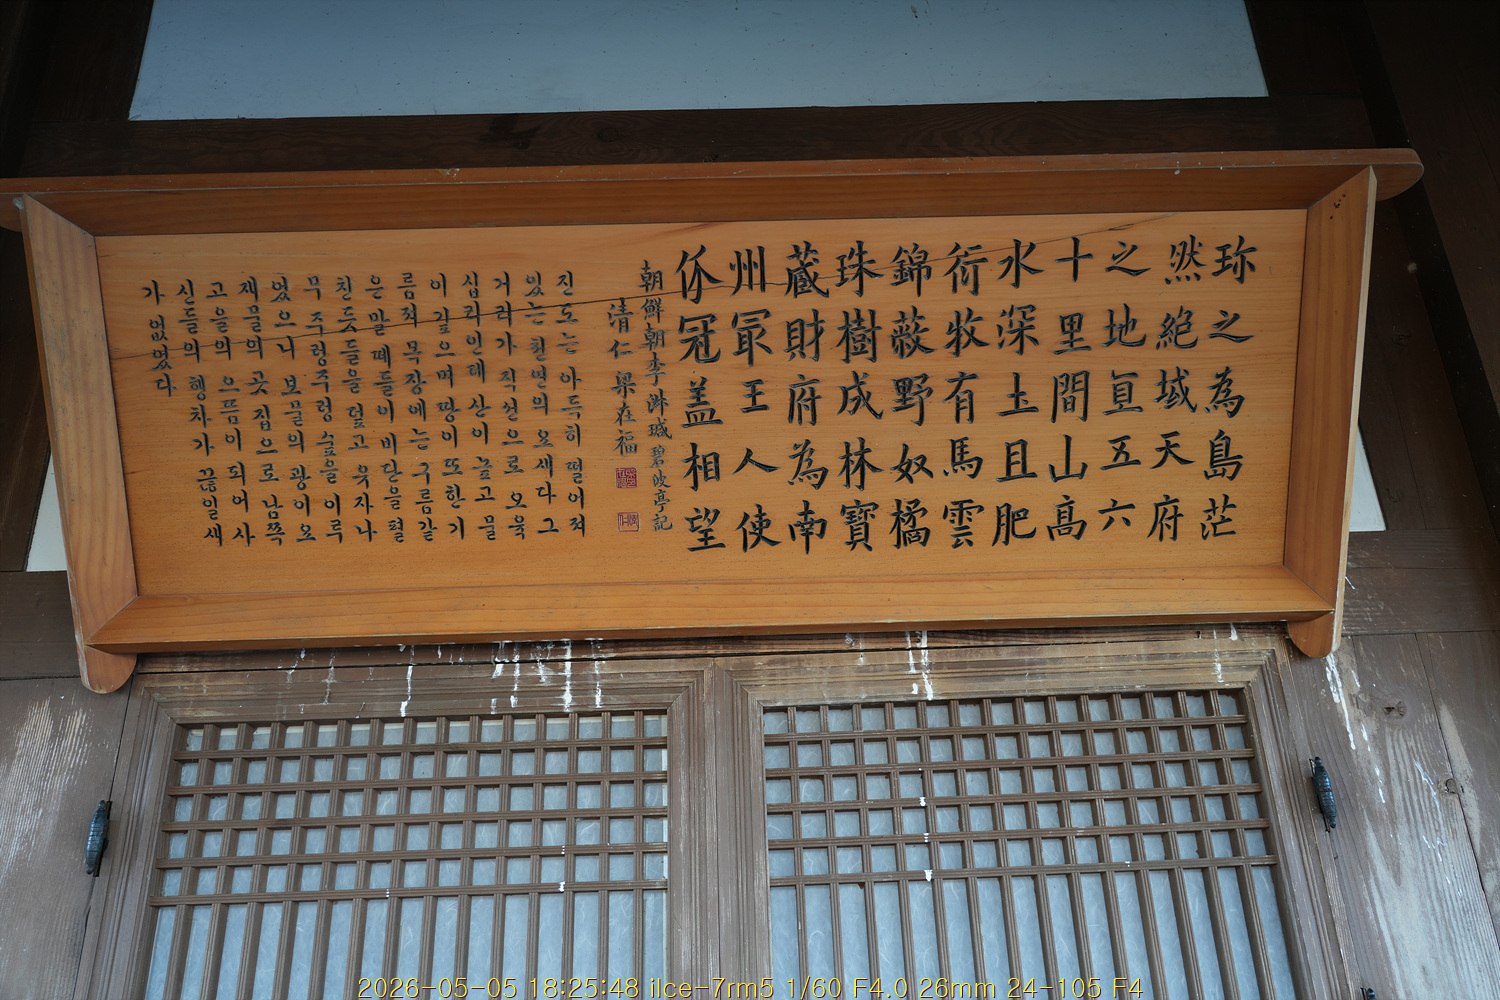 珎之為島茫
然絶域天府
之地亘五六
十里間山高
水深土且肥
衍牧有馬雲
錦蔽野奴橘
珠樹成林寶
蔵財府為南
州冣王人使
价冠盖相望
朝鮮朝李 碧波亭記
清仁 梁在福
진도는 아득히 떨어져
있는 천연의 요새다 그
거리가 직선으로 오육
십리인데 산이 높고 물
이 깊으며 땅이 또한 기
름져 목장에는 구름같
은 말 떼들이 비단을 펼
친듯 들을 덮고 유자나
무 주렁주렁 숲을 이루
었으니 보물의 광이오
재물의 곳집으로 남쪽
고을의 으뜸이 되어 사
신들의 행차가 끊일새
가 없었다
2026-05-05 18:25:48 ilce-7rm5 1/60 F4.0 26mm 24-105 F4